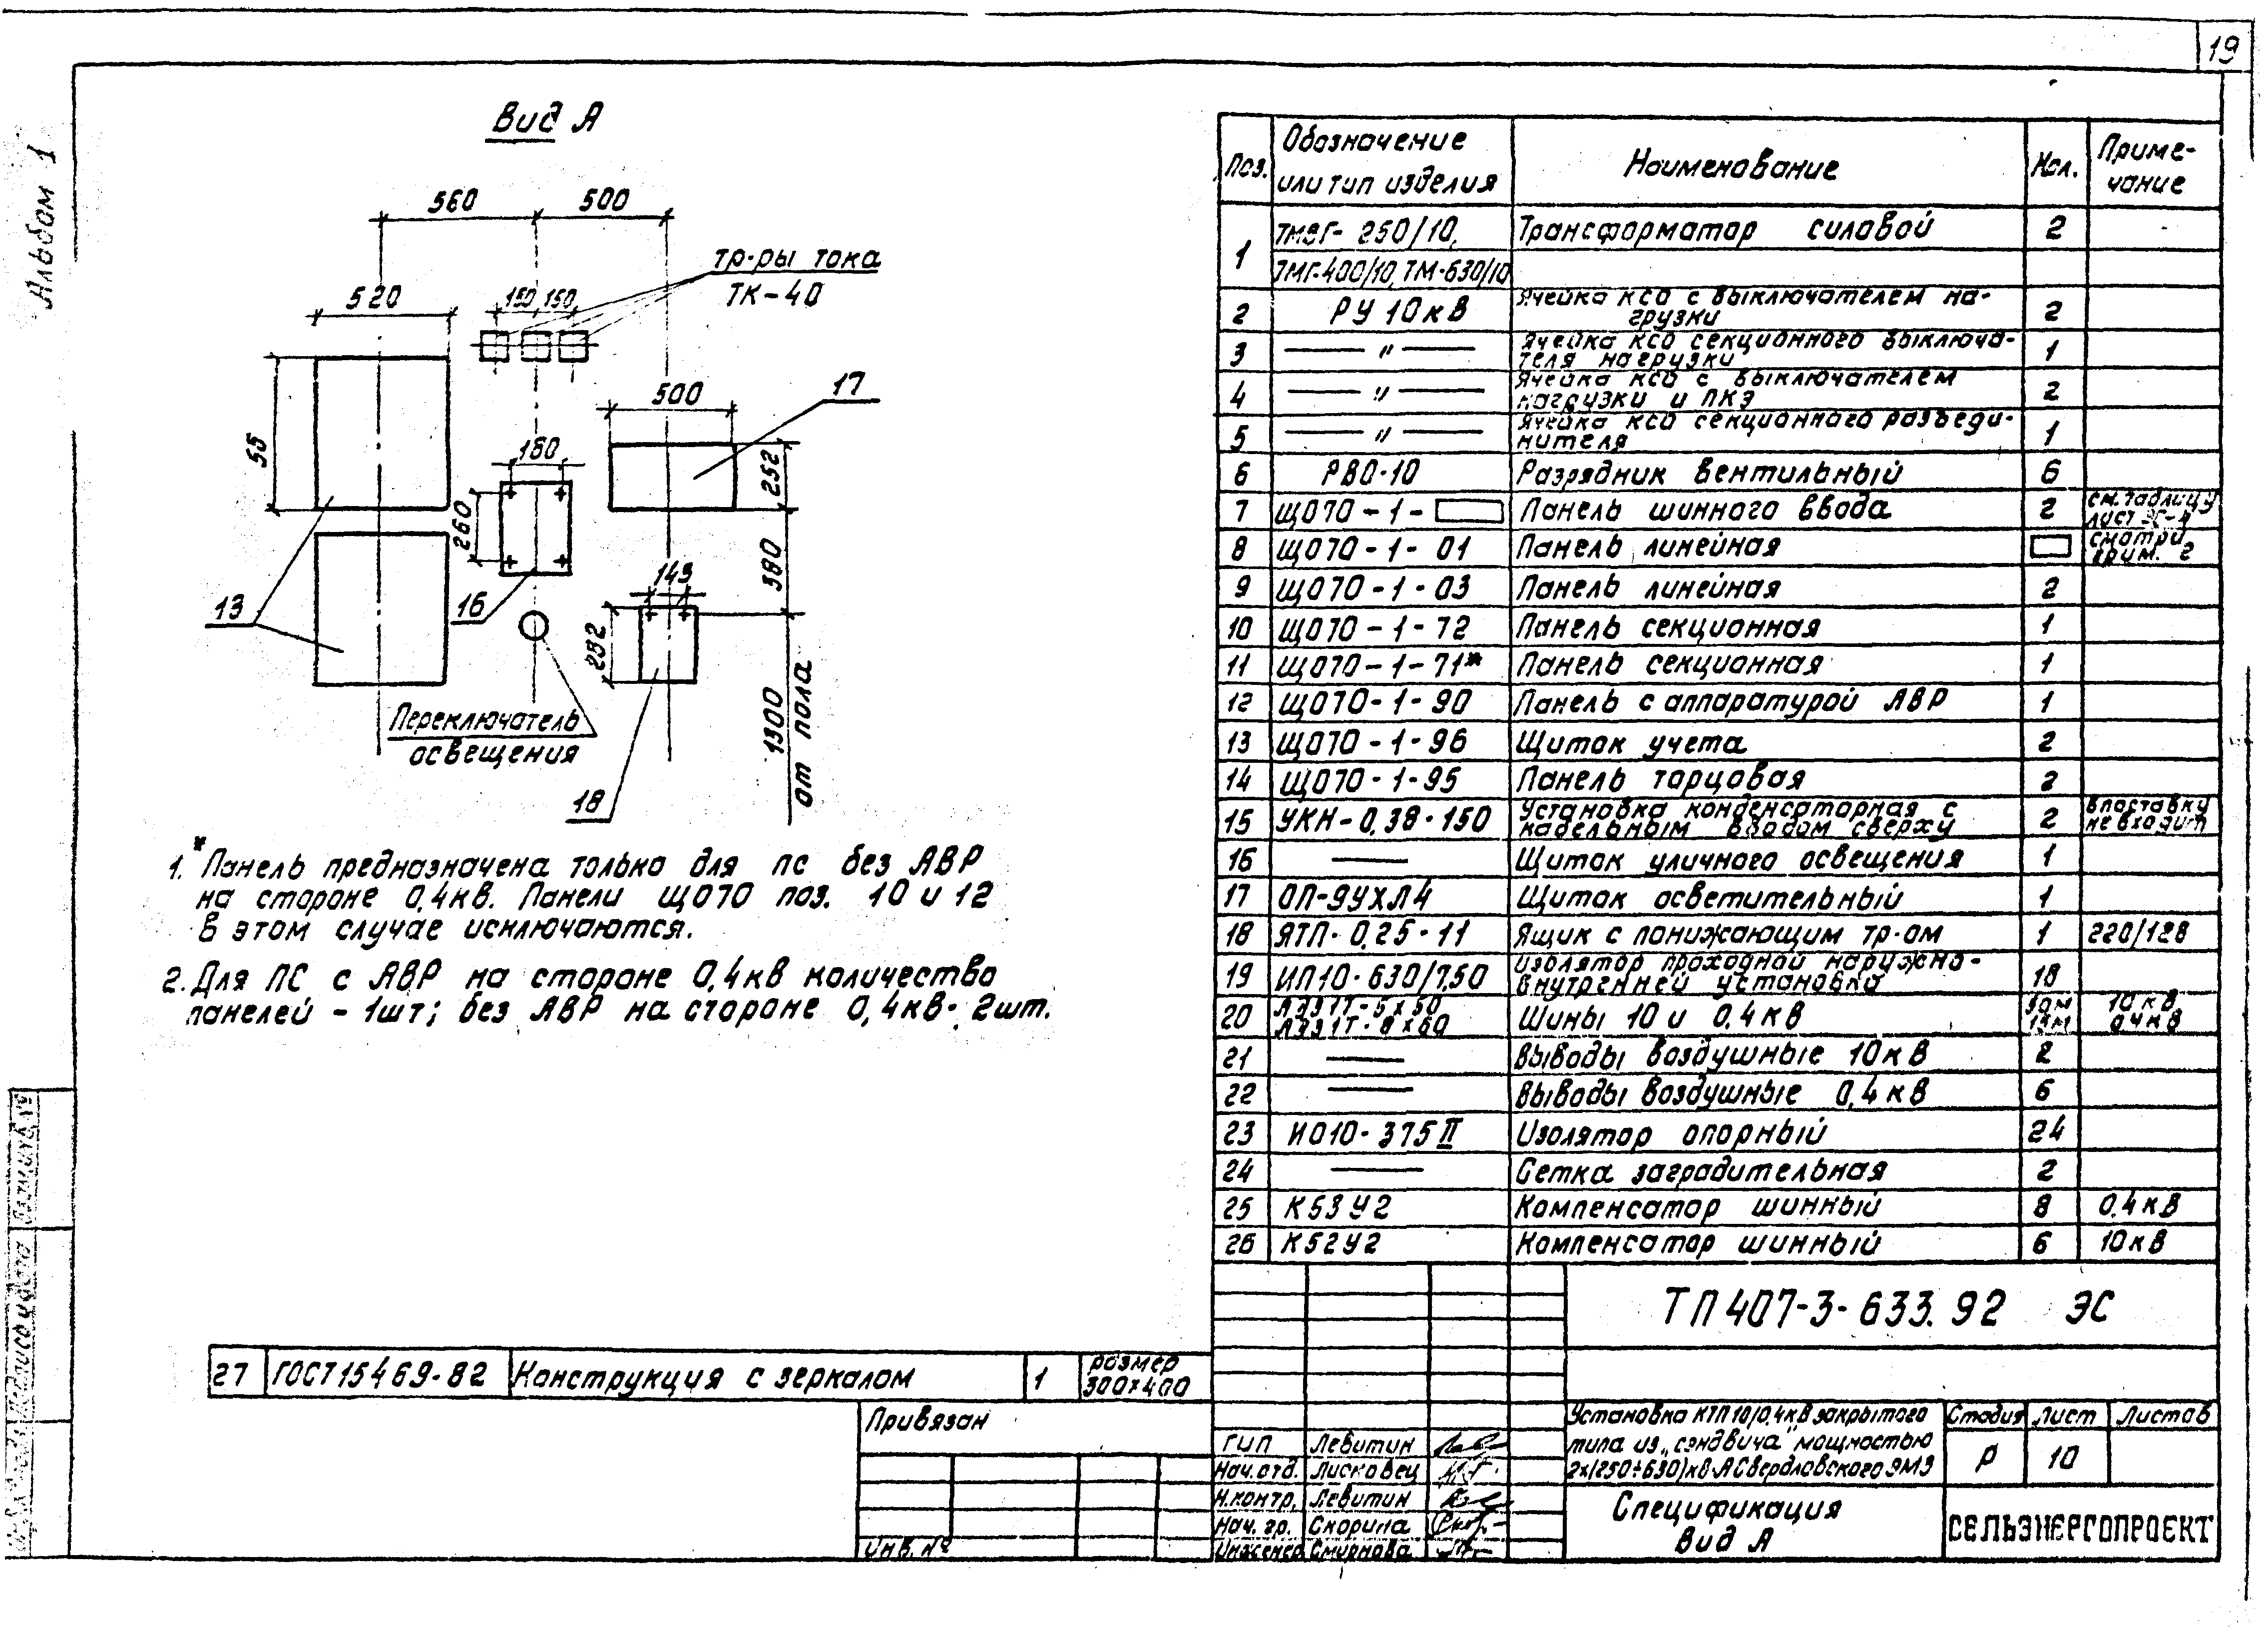 19
Альбом 1
Вид А
560
500
тр-ры тока
ТК-40
520
150 150
55
500
17
160
252
260
380
13
16
143
232
Переключатель
освещения
18
1300
от пола
1.* Панель предназначена только для пс без АВР
на стороне 0,4кв. Панели ЩО70 поз. 10 и 12
в этом случае исключаются.
2. Для ПС с АВР на стороне 0,4кв количество
панелей - 1шт; без АВР на стороне 0,4кв- 2шт.
Поз. Обозначение или тип изделия Наименование Кол. Примечание
1 ТМВГ- 250/10, Трансформатор силовой 2
ТМГ-400/10, ТМ-630/10
2 РУ 10кВ Ячейка КСО с выключателем на-
грузки 2
3 — " — Ячейка КСО секционного выключа-
теля нагрузки 1
4 — " — Ячейка КСО с выключателем
нагрузки и ПКЭ 2
5 — " — Ячейка КСО секционного разъеди-
нителя 1
6 РВО-10 Разрядник вентильный 6
7 ЩО70-1- Панель шинного ввода 2 см. таблицу
лист ЭС-4
8 ЩО70-1-01 Панель линейная смотри
прим. 2
9 ЩО70-1-03 Панель линейная 2
10 ЩО70-1-72 Панель секционная 1
11 ЩО70-1-71* Панель секционная 1
12 ЩО70-1-90 Панель с аппаратурой АВР 1
13 ЩО70-1-96 Щиток учета 2
14 ЩО70-1-95 Панель торцовая 2
15 УКН-0,38-150 Установка конденсаторная с
кабельным вводом сверху 2 в поставку
не входит
16 — Щиток уличного освещения 1
17 ОП-9УХЛ4 Щиток осветительный 1
18 ЯТП-0,25-11 Ящик с понижающим тр-ом 1 220/12В
19 ИП10-630/750 Изолятор проходной наружно-
внутренней установки 18
20 АД31Т-5х50 Шины 10 и 0.4кВ 10кв
АД31Т-8х60 0.4кв
21 — Выводы воздушные 10кВ 2
22 — Выводы воздушные 0,4кВ 6
23 ИО10-375 II Изолятор опорный 24
24 — Сетка заградительная 2
25 К53У2 Компенсатор шинный 8 0.4кВ
26 К52У2 Компенсатор шинный 6 10кВ
27 ГОСТ15469-82 Конструкция с зеркалом 1 размер
300х400
ТП407-3-633.92 ЭС
Привязан
Инв. №
ГИП Левитин
Нач. отд. Лисковец
Н.контр. Левитин
Нач. гр. Скорина
Инженер Смирнова
Установка КТП10/0,4кВ закрытого
типа из „сэндвича" мощностью
2х(250÷630)кВ·А Свердловского ЭМЗ
Стадия Лист Листов
Р 10
Спецификация
Вид А
СЕЛЬЭНЕРГОПРОЕКТ
Взам.инв.№
Подпись и дата